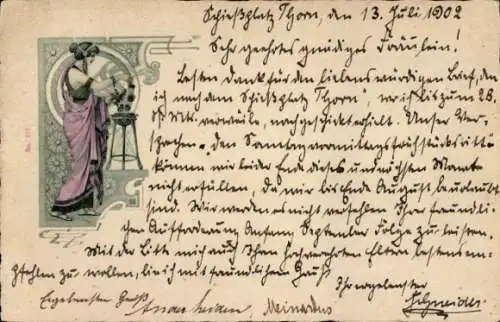 Schießplatz Thorn, den 13. Juli 1902
Sehr geehrtes gnädiges Fräulein!
Besten Dank für den liebenswürdigen Brief, den
ich nach dem „Schießplatz Thorn“, wo ich bis zum 28.
verweile, nachgeschickt erhielt. Unser Ver-
sprechen, den Sonntagvormittagsfrühstücksritt
können wir leider Ende dieses und nächsten Monats
nicht erfüllen, da wir bis Ende August beurlaubt
sind. Wir werden es nicht verfehlen Ihrer freundli-
chen Aufforderung Anfang September Folge zu leisten.
Mit der Bitte mich auch Ihren hochverehrten Eltern bestens em-
pfehlen zu wollen, bin ich mit freundlichem Gruß
Ihr ergebenster
Schneider
Ergebensten Gruß
Meinardus